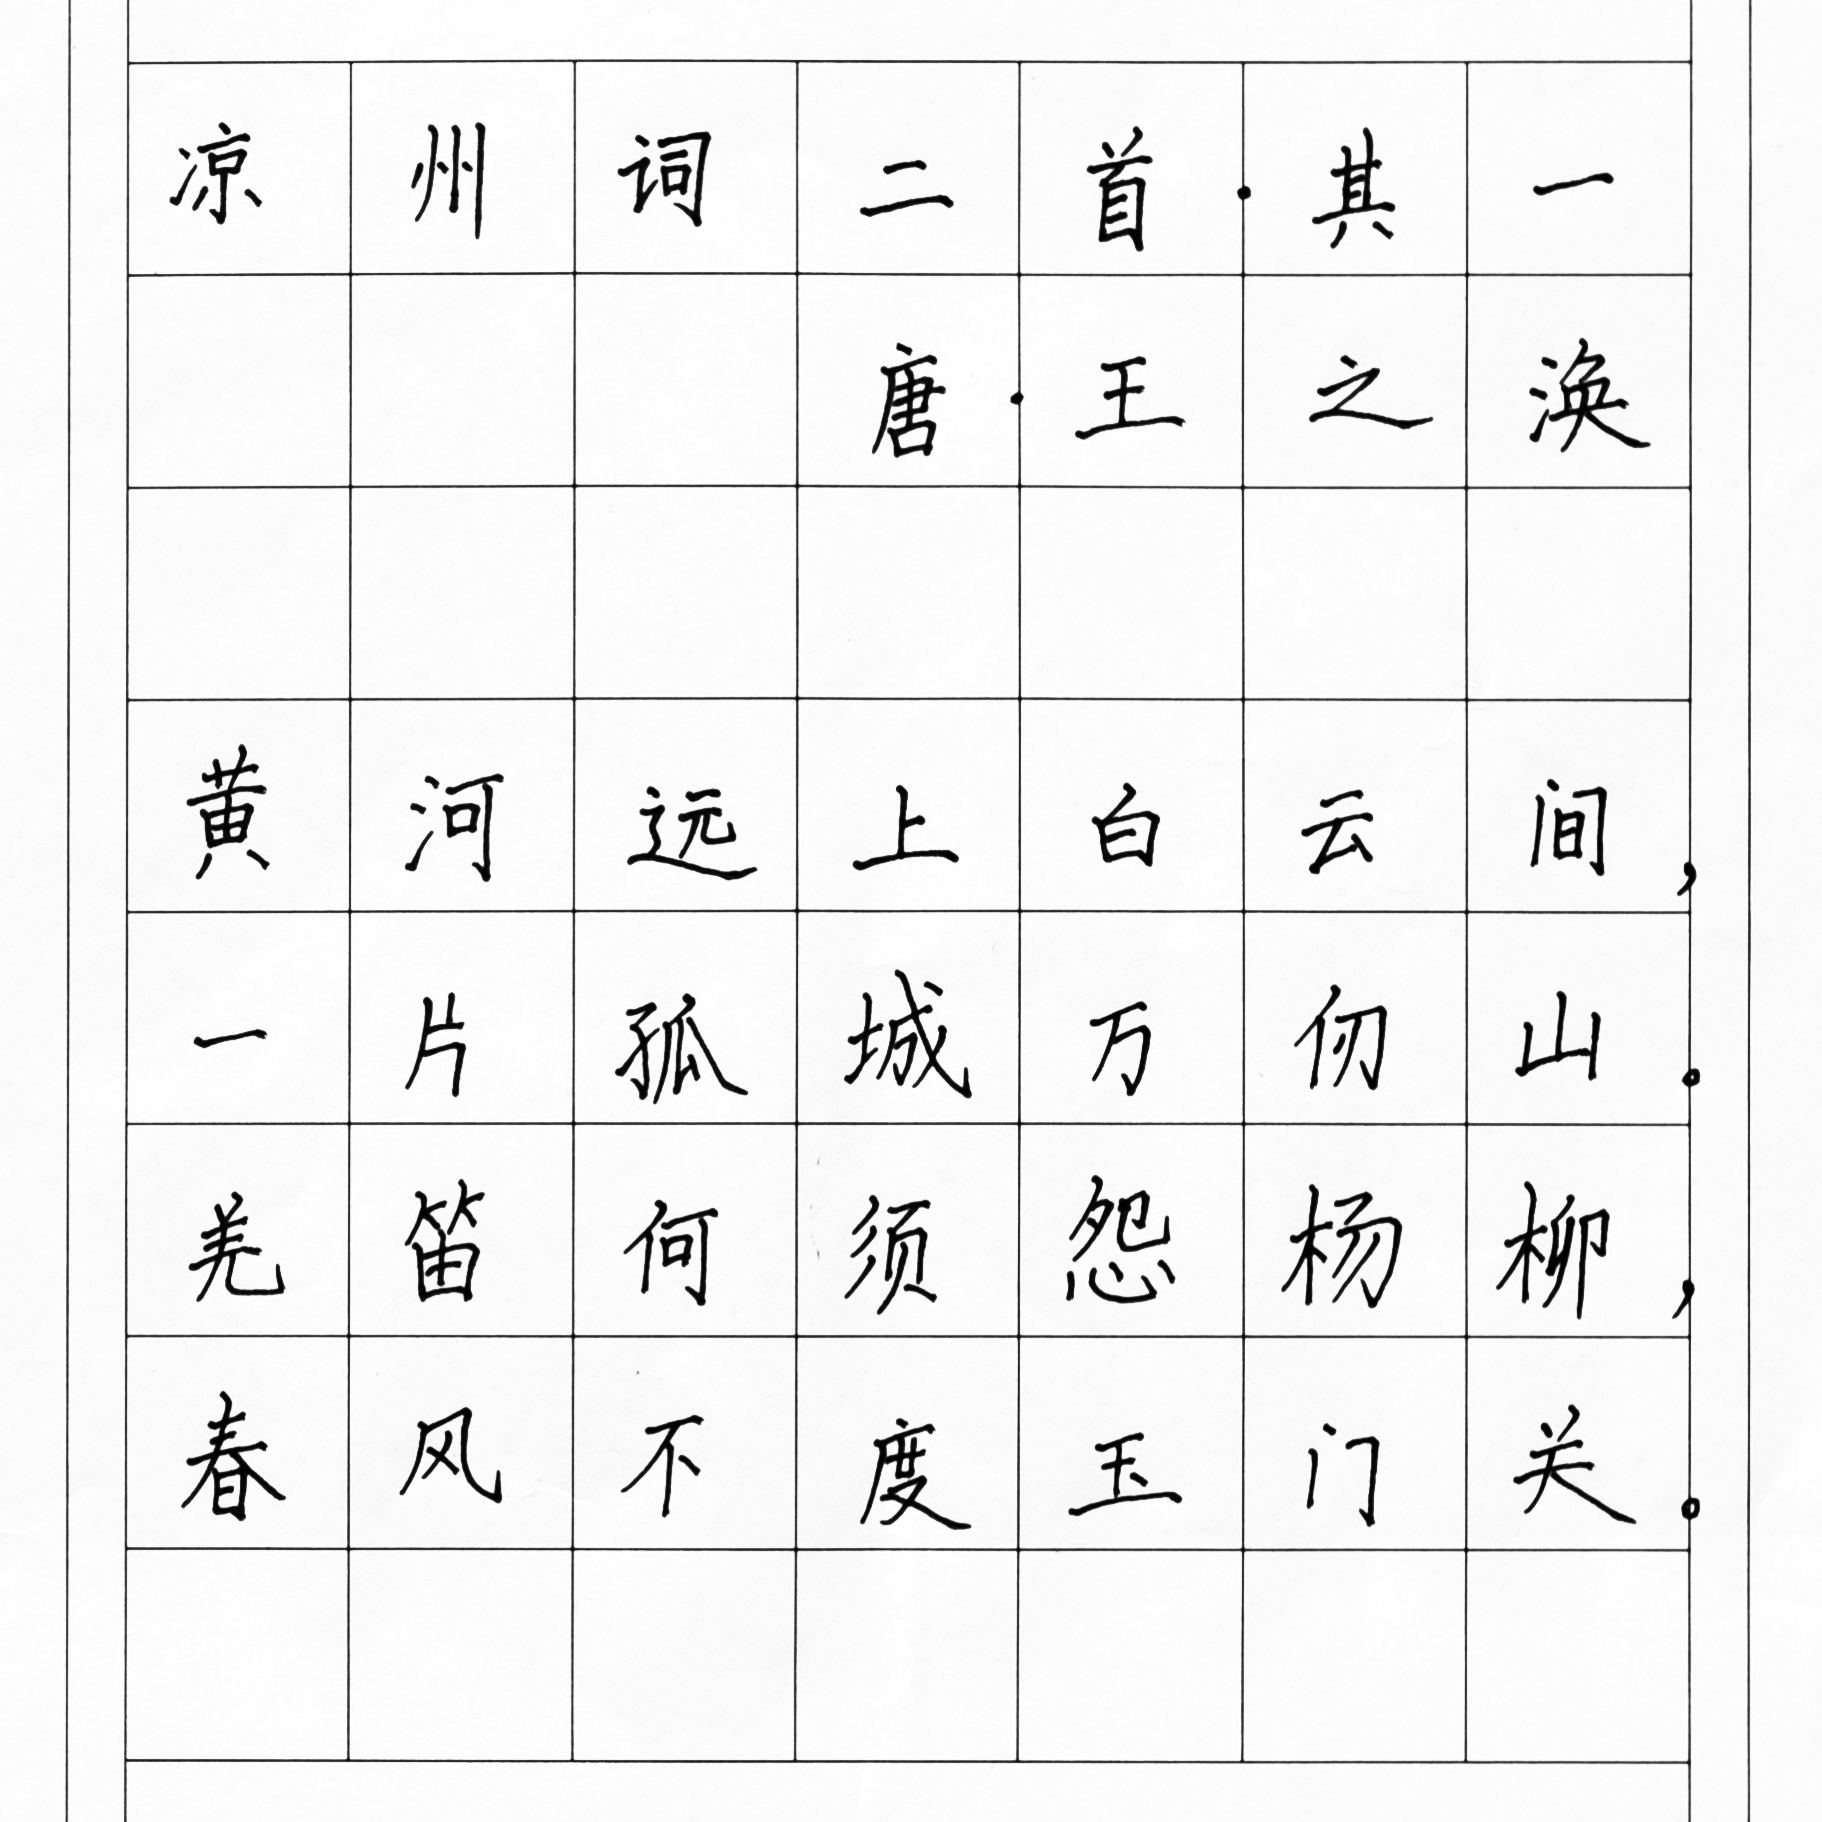 凉州词二首·其一
唐·王之涣
黄河远上白云间，
一片孤城万仞山。
羌笛何须怨杨柳，
春风不度玉门关。